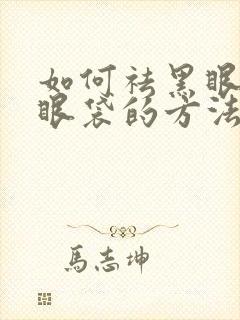 如何祛黑眼
眼袋的方法
馬志坤